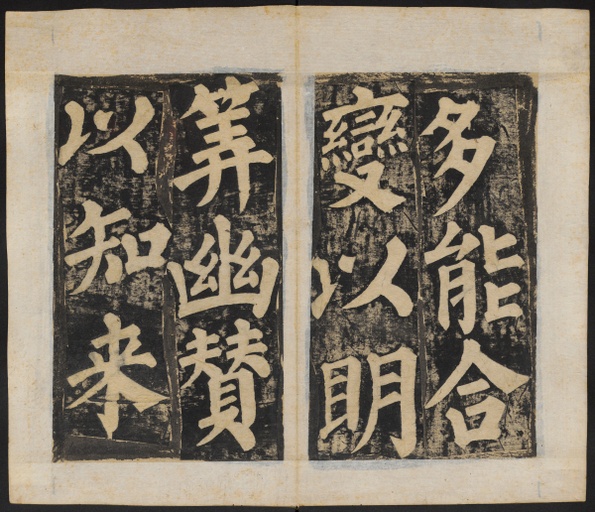 多能合
變以明
筭幽贊
以知来